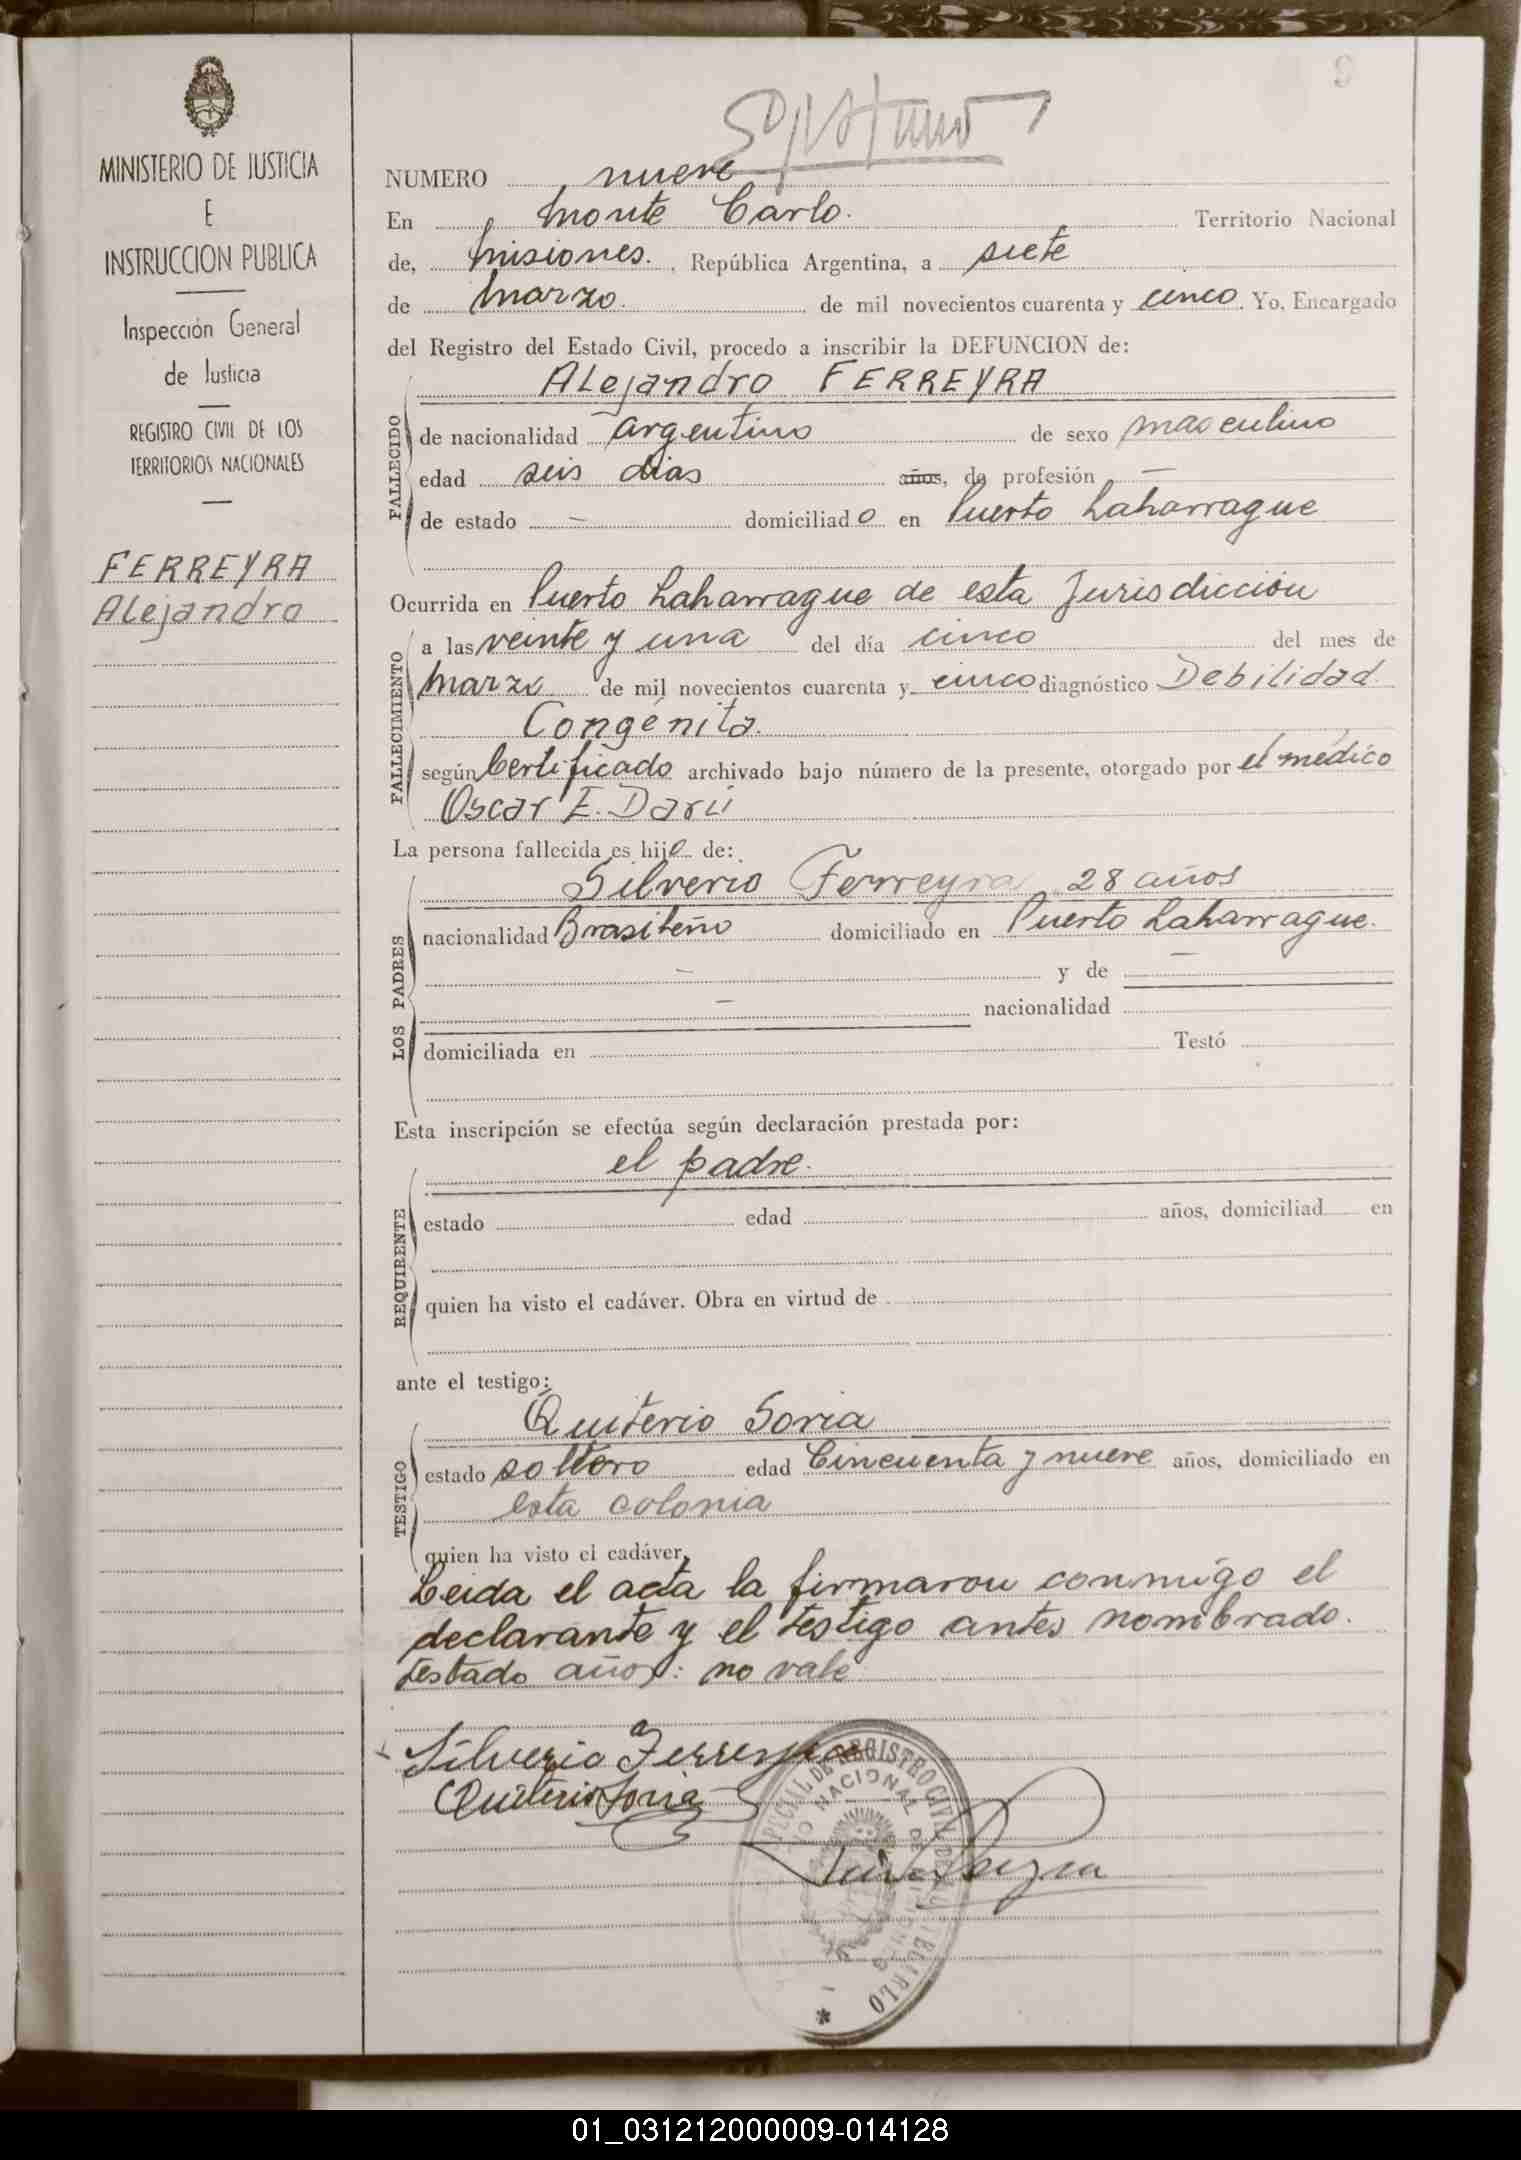 MINISTERIO DE JUSTICIA
E
INSTRUCCION PUBLICA
Inspección General
de Justicia
REGISTRO CIVIL DE LOS
TERRITORIOS NACIONALES
FERREYRA
Alejandro
9
NUMERO nueve
En Monte Carlo. Territorio Nacional
de, Misiones. , República Argentina, a siete
de Marzo. de mil novecientos cuarenta y cinco. Yo, Encargado
del Registro del Estado Civil, procedo a inscribir la DEFUNCION de:
ALejandro FERREYRA
FALLECIDO
de nacionalidad argentino de sexo masculino
edad seis dias años, de profesión —
de estado — domiciliado en Puerto Laharrague
Ocurrida en Puerto Laharrague de esta Jurisdicción
FALLECIMIENTO
a las veinte y una del día cinco del mes de
Marzo de mil novecientos cuarenta y cinco diagnóstico Debilidad
Congénita.
según Certificado archivado bajo número de la presente, otorgado por el médico
Oscar E. Darú
La persona fallecida es hijo de:
LOS PADRES
Silverio Ferreyra 28 años
nacionalidad Brasileño domiciliado en Puerto Laharrague.
— y de —
— nacionalidad
domiciliada en Testó
Esta inscripción se efectúa según declaración prestada por:
REQUIRENTE
el padre.
estado edad años, domiciliad en
quien ha visto el cadáver. Obra en virtud de
ante el testigo:
TESTIGO
Quiterio Soria
estado soltero edad Cincuenta y nueve años, domiciliado en
esta colonia
quien ha visto el cadáver,
Leida el acta la firmaron conmigo el
declarante y el testigo antes nombrado.
testado años: no vale
Silverio Ferreyra
Quiterio Soria
01_031212000009-014128